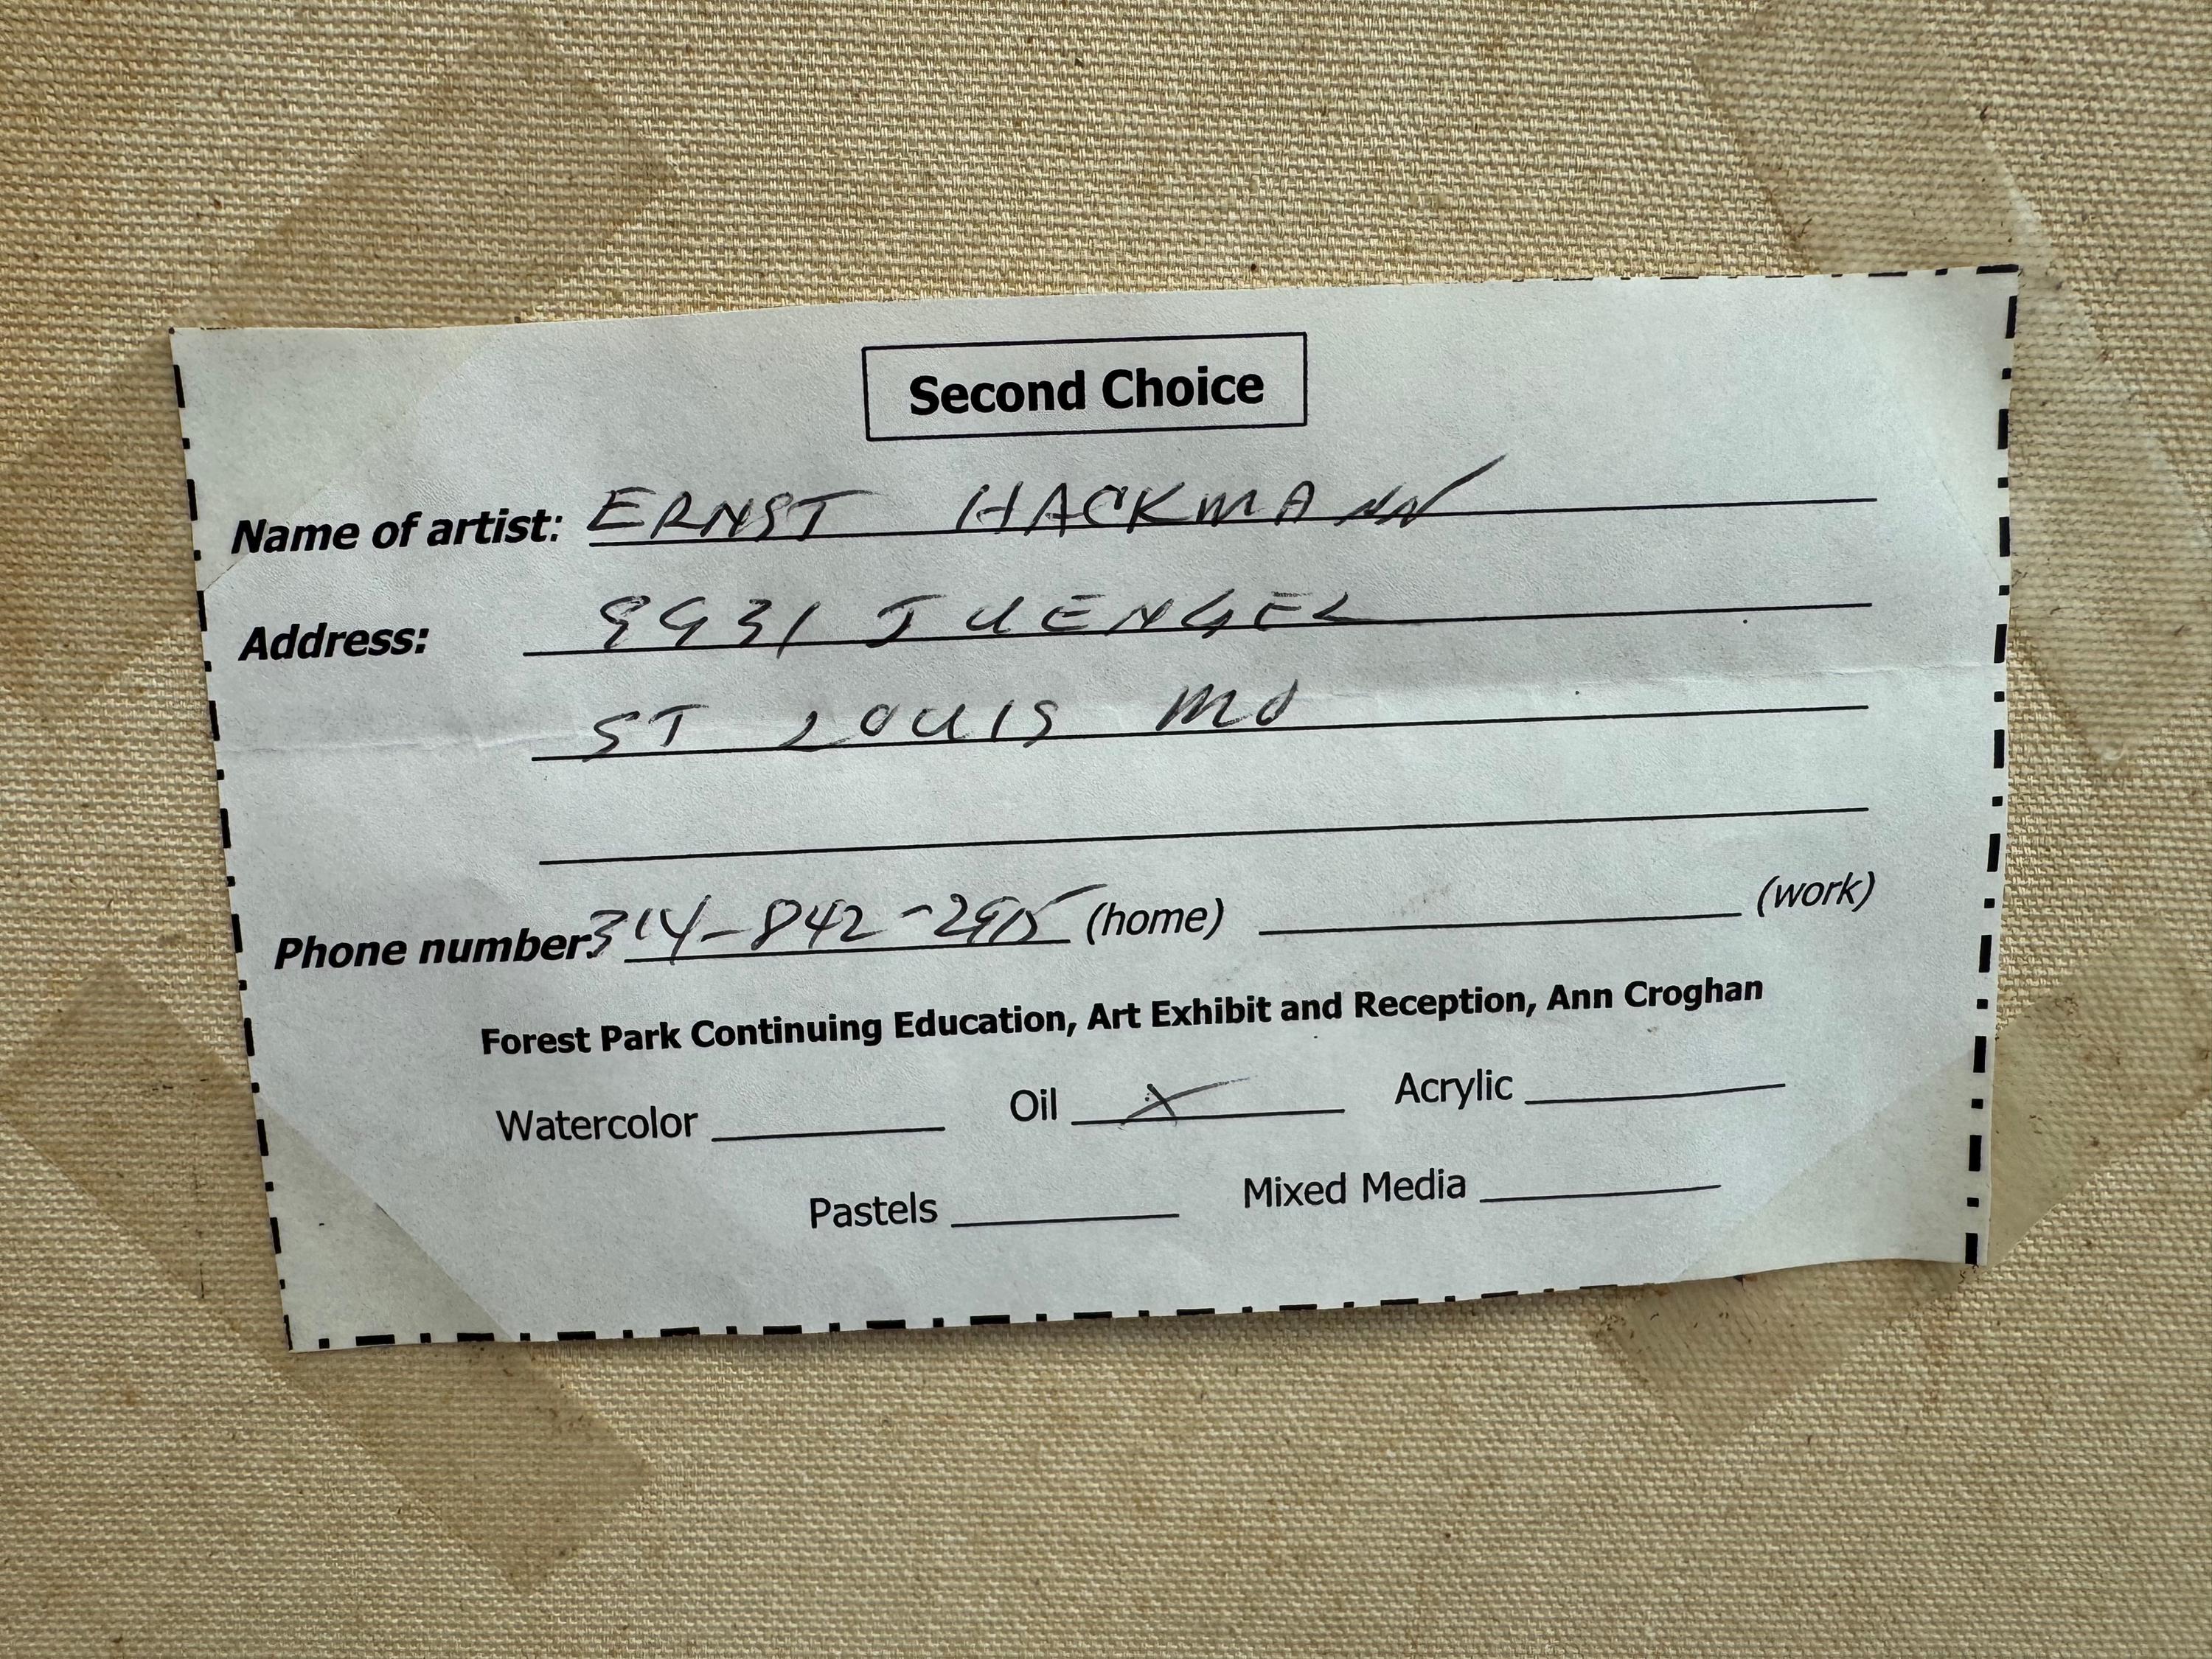 Second Choice
Name of artist: ERNST HACKMANN
Address: 9931 JUENGEL
ST LOUIS MO
Phone number: 314-842-2915 (home) (work)
Forest Park Continuing Education, Art Exhibit and Reception, Ann Croghan
Watercolor Oil X Acrylic
Pastels Mixed Media